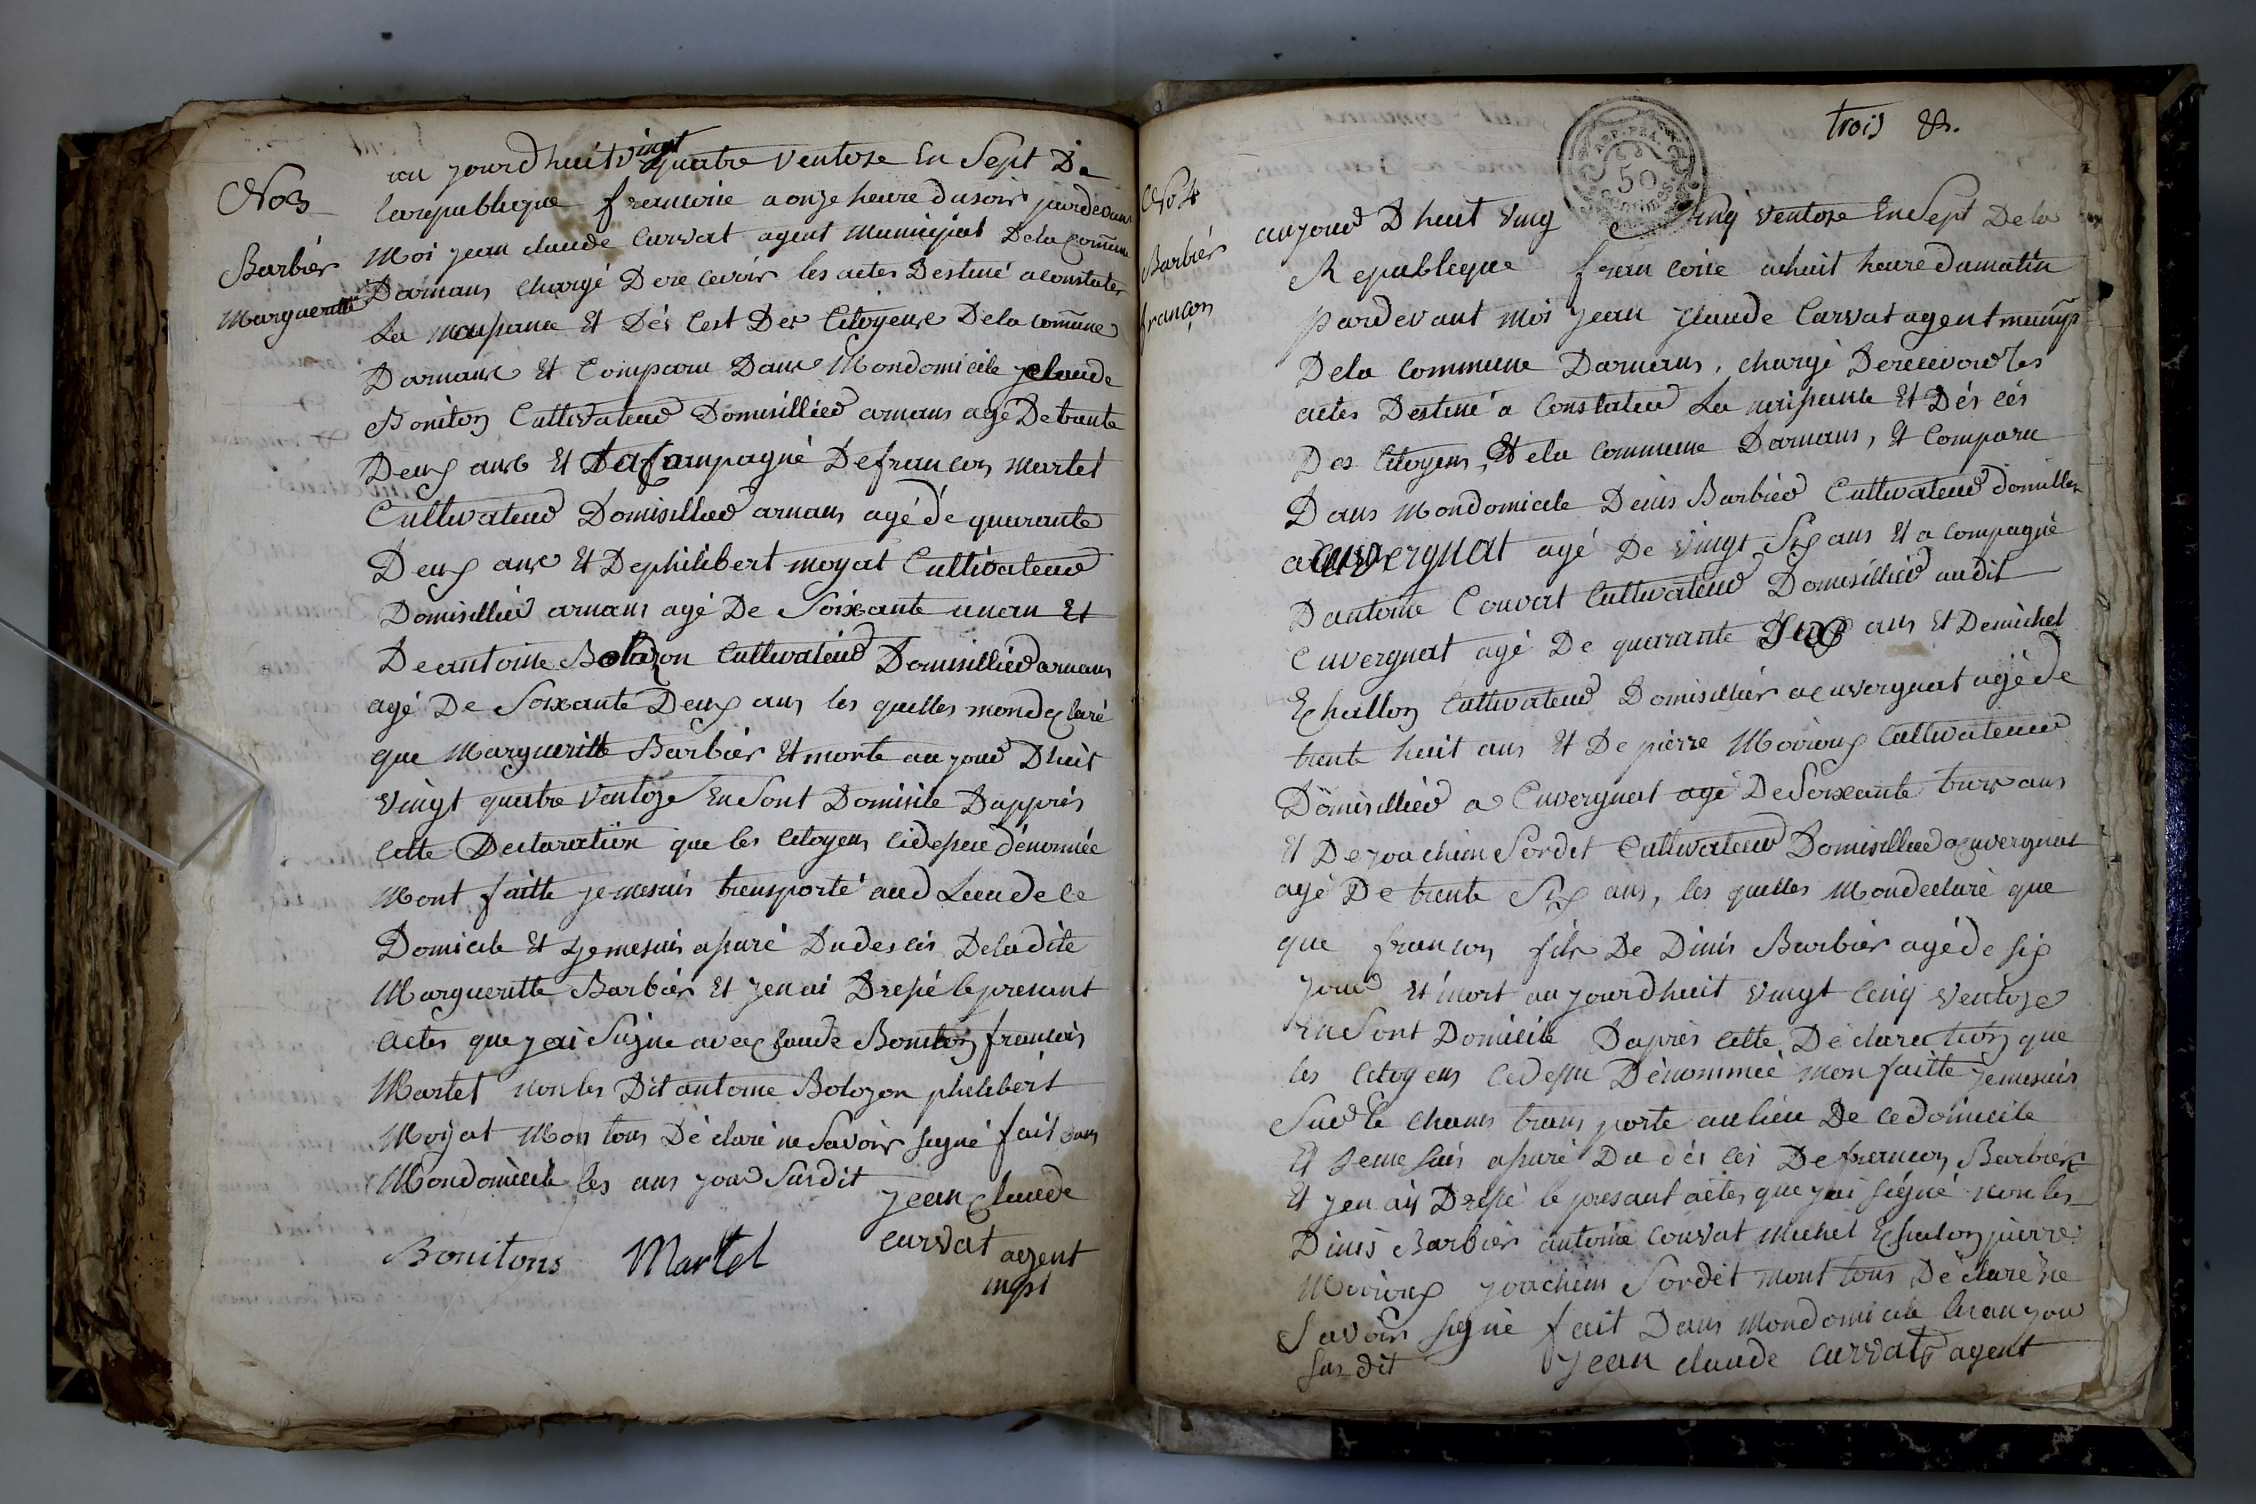 No3
Barbiér
Margueritte
au jourdhuit vingt quatre ventose En Sept De
larepublique francoise a onze heure dusoir pardevant
Moi jean claude Curvat agent municipal Dela Commune
Darnans chargé De recevoir les actes Destiné a constater
La naisance Et Dés Cest Des Citoyens Dela commune
Darnans Et Comparu Dans Mondomicile Claude
Boniton Cultivateur Domisilliér arnans agé De trante
Deux ans Et Dacompagné De francois Martel
Cultivateur Domisilliér arnans agé dé quarante
Deux ans Et Dephilibert moyat Cultivateur
Domisilliér arnans agé De Soixante un an Et
De antoine Bolozon Cultivateur Domisilliér arnans
agé De Soixante Deux ans les quelles mondeclaré
que Margueritte Barbiér Et morte au jour Dhuit
Vingt quatre Ventoze En Sont Domisile Dapprés
Cette Declaration que les Citoyens Cidesue dénonmée
Mont faitte je mesuis transporté aud Lieu de ce
Domicile Et jemesuis asuré Dudescés Deladite
Margueritte Barbiér Et jenai Dresé le presant
actes que jai Signe avec Claude Boniton francois
Martel non les Dit antoine Bolozon philibert
Moyat Mon tous Déclaré ne Savoir signé fait dans
Mondomicile les ans jour Susdit
jean Claude
curvat agent
mpl
Bonitons Martel
trois
50
No4
Barbiér
françon
aujour Dhuit Ving Cinq Ventose En Sept Dela
Republeque francoise ahuit heure Dumatin
pardevant moi jean Claude Curvat agent municip
Dela commune Darnans, chargé Derecevoir les
actes Destiné a Constateur La naisance Et Dés cés
Des Citoyens, Et ela Commune Darnans, Et Comparu
Dans Mondomicile Denis Barbiér Cultivateur domiller
a Cuvergnat agé De Vingt Six ans Et a compagné
Dantoine Couvat Cultivateur Domisilliér audit
Cuvergnat agé De quarante ans Et Demichel
Echallon Cultivateur Domisilliér a cuvergnat agé de
trente huit ans Et De pierre Moiroux Cultivateur
Domisilliér a Cuvergnat agé De Soixante trois ans
Et De joachim Sordet Cultivateur Domisilliér a cuvergnat
agé De trente Six ans, les quelles Mondeclaré que
que francon fils De Dinis Barbiér agé de six
jour Et mort au jourdhuit vingt Cinq Ventoze
En Sont Domicile Daprés Cette Déclaration que
les Citoyens Cedesue Dénommée mon faitte jemesuis
Sur le chams trans porte au lieu De ce domicile
Et jemesuis asuré Du dés cés De francon Barbiér
Et jen ais Dresé le presant actes que jai Signé non les
Dinis Barbiér antoine Couvat Michel Echalon pierre
Moiroux joachim Sordet mont tous Déclaré ne
Savoir signé fait Dans Mondomicile lesan jour
Susdit jean claude curvat agent